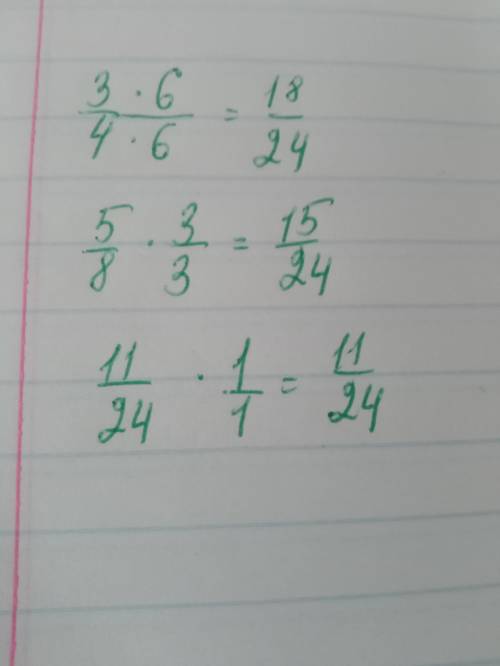 3 · 6 / 4 · 6 = 18/24
5/8 · 3/3 = 15/24
11/24 · 1/1 = 11/24